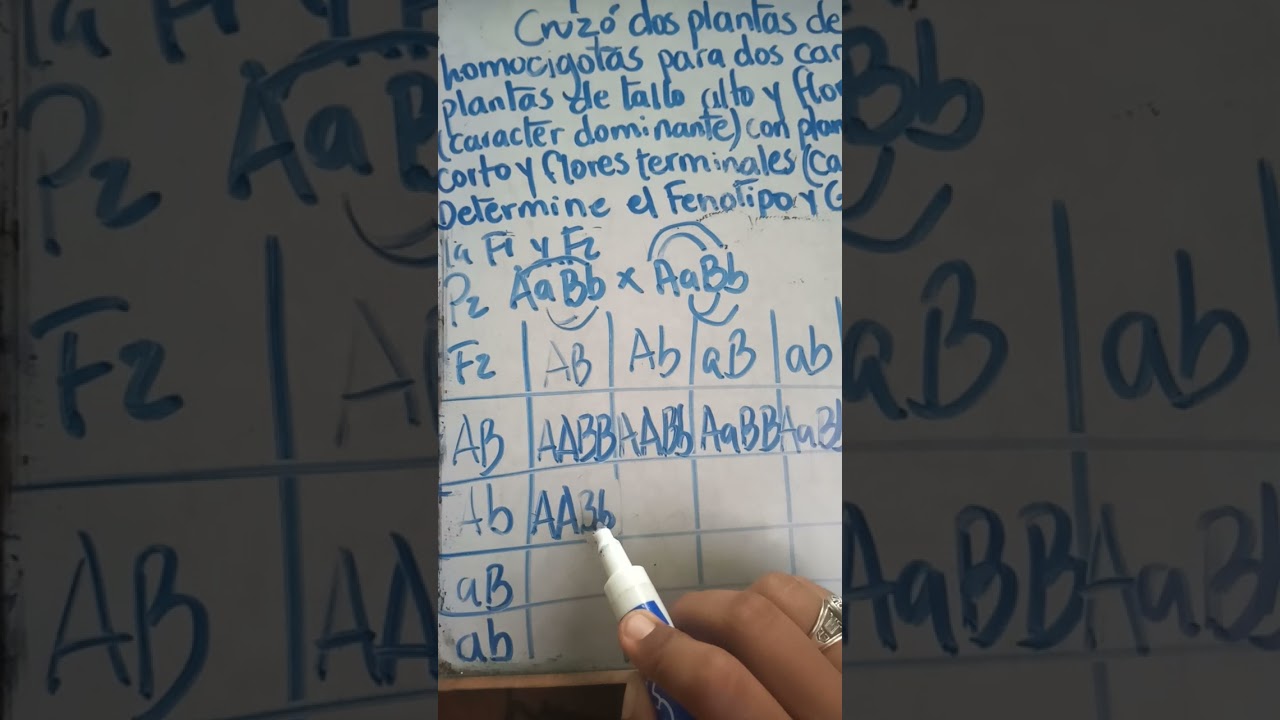 Cruzó dos plantas de
homocigotas para dos car
plantas de tallo alto y flor
(caracter dominante) con plan
corto y flores terminales (ca
Determine el Fenotipo y G
la F1 y F2
P2 AaBb x AaBb
F2 AB Ab aB ab
AB AABB AABb AaBB AaBb
Ab AABb
aB
ab